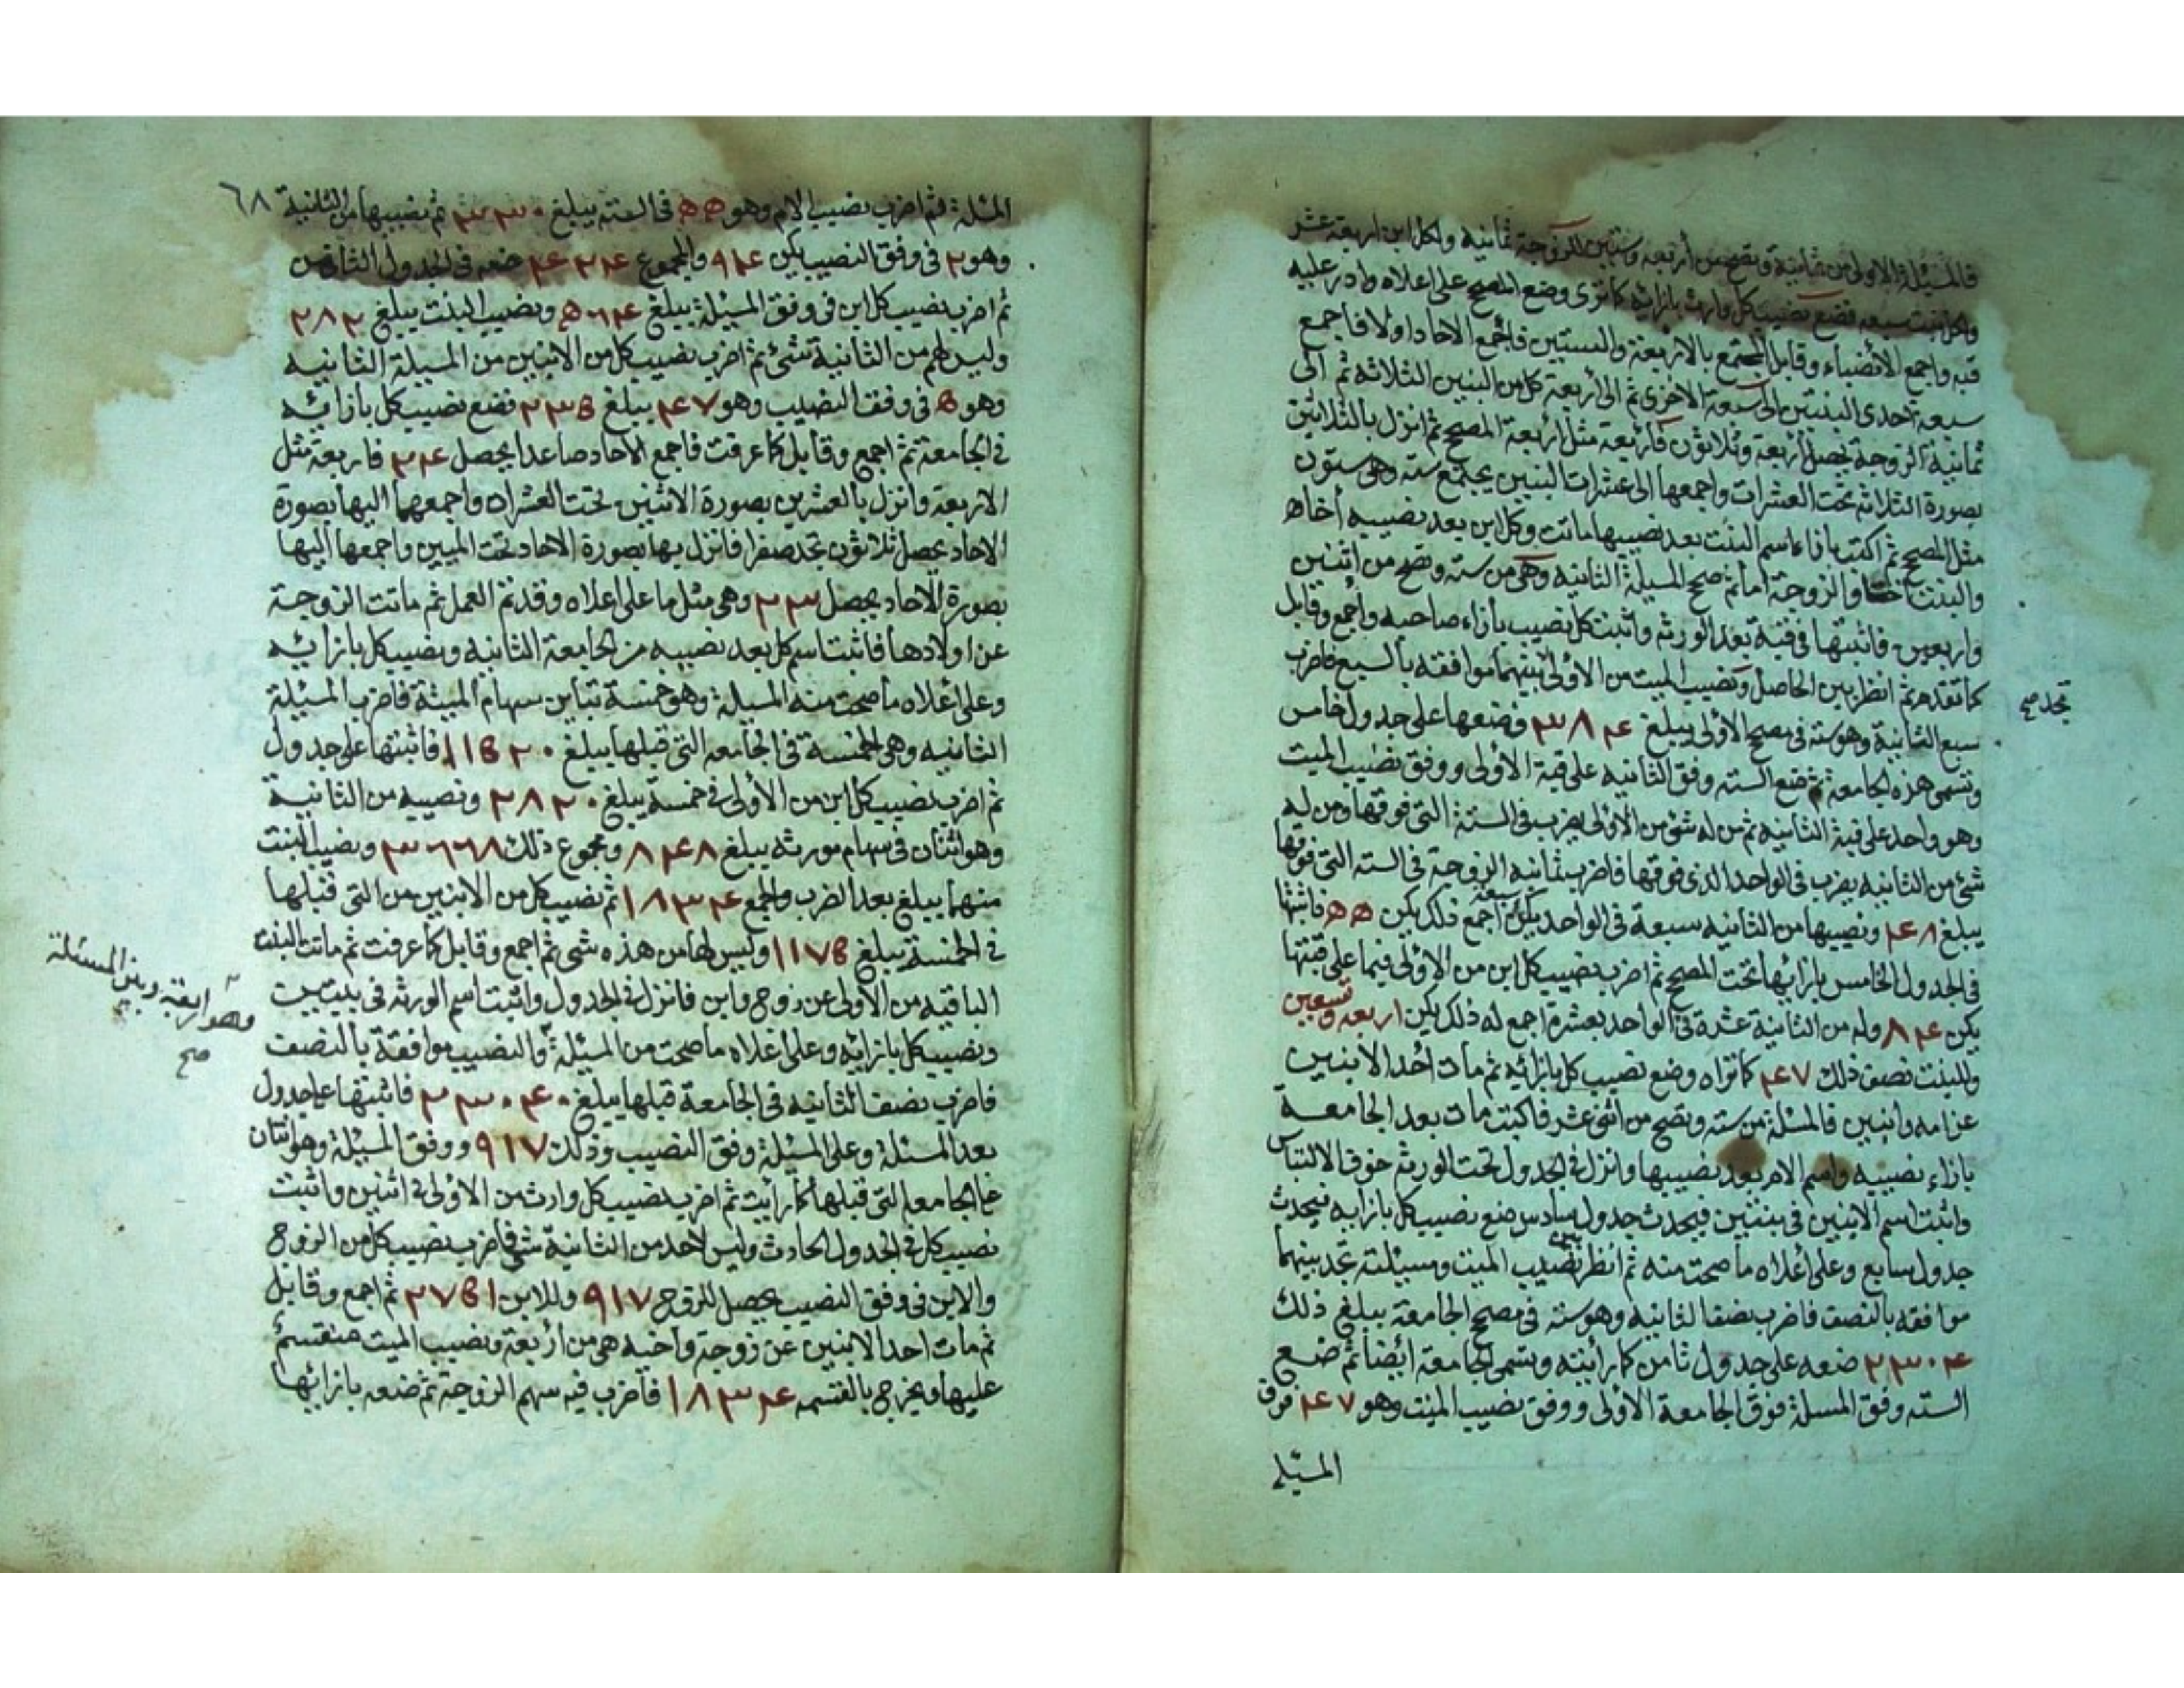 فالمسئلة الاولى من ثمانية وتصح من أربعه وستين للزوجة ثمانيه ولكل ابن اربعة عشر
ولكل بنت سبعه فضع نصيب كل وارث بازائه كما ترى وضع المصح على اعلاه وادر عليه
قبه واجمع الأنصباء وقابل المجتمع بالاربعة والستين فاجمع الاحاد اولا فاجمع
سبعة احدى البنتين الى سبعة الاخرى ثم الى أربعة كل من البنين الثلاثه ثم الى
ثمانية الزوجة يحصل أربعة وثلاثون فأربعة مثل أربعة المصح ثم انزل بالثلاثين
بصورة الثلاثه تحت العشرات واجمعها الى عشرات البنين يجتمع سته وهى ستون
مثل المصح ثم اكتب بازاء اسم البنت بعد نصيبها ماتت وكل ابن بعد نصيبه أخاها
والبنت اختا والزوجة اما ثم صحح المسيلة الثانيه وهى من سته وتصح من اثنين
واربعين فاثبتها فى قبة بعد الورثه واثبت كل نصيب بأزاء صاحبه وأجمع وقابل
كما تقدم ثم انظر بين الحاصل ونصيب الميت من الأولى بينهما موافقه بالسبع فاضرب
تجد صح
سبع الثانية وهو سته فى مصح الأولى يبلغ ٣٨٤ فضعها على جدول خامس
وتسمى هذه الجامعة ثم ضع السته وفق الثانيه على قبة الأولى ووفق نصيب الميت
وهو واحد على قبة الثانيه ثم من له شئ من الأولى يضرب فى الستة التى فوقها ومن له
شئ من الثانيه يضرب فى الواحد الذى فوقها فاضرب ثمانيه الزوجة فى السته التى فوقها
يبلغ ٤٨ ونصيبها من الثانيه سبعة فى الواحد يكن سبعة اجمع ذلك يكن ٥٥ فاثبتها
فى الجدول الخامس بازائها تحت المصح ثم اضرب نصيب كل ابن من الأولى فيما على قبتها
يكن ٨٤ وله من الثانية عشرة فى الواحد بعشرة اجمع له ذلك يكن اربعه وتسعين
وللبنت نصف ذلك ٤٧ كما تراه وضع نصيب كل بازائه ثم مات أحد الأبنين
عن امه وابنين فالمسئلة من سته وتصح من اثنى عشر فاكتب مات بعد الجامعة
بازاء نصيبه واسم الام بعد نصيبها وانزل فى الجدول تحت الورثه خوف الالتباس
واثبت اسم الابنين فى بيتين فيحدث جدول سادس ضع نصيب كل بازايه فيحدث
جدول سابع وعلى أعلاه ما صحت منه ثم انظر بين نصيب الميت ومسيلته تجد بينهما
موافقه بالنصف فاضرب نصف الثانيه وهو سته فى مصح الجامعة يبلغ ذلك
٢٣٠٤ ضعه على جدول ثامن كما رأيته ويسمى الجامعة أيضا ثم ضع
السته وفق المسيلة فوق الجامعة الأولى ووفق نصيب الميت وهو ٤٧ فوق
المسيلة
٦٨
المسئلة ثم اضرب نصيب الام وهو ٥٥ فى السته يبلغ ٣٣٠ ثم نصيبها من الثانية
وهو ٢ فى وفق النصيب يكن ٩٤ والمجموع ٤٢٤ ضعه فى الجدول الثامن
ثم اضرب نصيب كل ابن فى وفق المسيلة يبلغ ٥٦٤ ونصيب البنت يبلغ ٢٨٢
وليس لهم من الثانية شئ ثم اضرب نصيب كل من الابنين من المسيلة الثانيه
وهو ٥ فى وفق النصيب وهو ٤٧ يبلغ ٢٣٥ فضع نصيب كل بازائه
فى الجامعة ثم اجمع وقابل كما عرفت فاجمع الاحاد صاعدا يحصل ٢٤ فاربعة مثل
الاربعة وانزل بالعشرين بصورة الاثنين تحت العشرات واجمعها اليها بصورة
الاحاد يحصل ثلاثون تجد صفرا فانزل بها بصورة الاحاد تحت الميين واجمعها اليها
بصورة الآحاد يحصل ٢٣ وهى مثل ما على اعلاه وقد تم العمل ثم ماتت الزوجة
عن اولادها فاثبت اسم كل بعد نصيبه من الجامعة الثانيه ونصيب كل بازائه
وعلى أعلاه ما صحت منه المسيلة وهو خمسة تباين سهام الميتة فاضرب المسيلة
الثانيه وهى الخمسة فى الجامعه التى قبلها يبلغ ١١٥٢٠ فاثبتها على جدول
ثم اضرب نصيب كل ابن من الأولى فى خمسة يبلغ ٢٨٢٠ ونصيبه من الثانية
وهو اثنان فى سهام مورثه يبلغ ٨٤٨ ومجموع ذلك ٣٦٦٨ ونصيب البنت
منهما يبلغ بعد الضرب والجمع ١٨٣٤ ثم نصيب كل من الابنين من التى قبلها
فى الخمسة يبلغ ١١٧٥ وليس لهما من هذه شى ثم اجمع وقابل كما عرفت ثم ماتت البنت
الباقيه من الأولى عن زوج وابن فانزل فى الجدول واثبت اسم الورثه فى بيتين
ونصيب كل بازائه وعلى اعلاه ما صحت من المسيلة والنصيب موافقة بالنصف
وهو اربعة وبين المسئلة
صح
فاضرب نصف الثانيه فى الجامعة قبلها يبلغ ٢٣٠٤٠ فاثبتها على جدول
بعد المسئلة وعلى المسيلة وفق النصيب وذلك ٩١٧ ووفق المسيلة وهو اثنان
على الجامعه التى قبلها كما رأيت ثم اضرب نصيب كل وارث من الأولى فى اثنين واثبت
نصيب كل فى الجدول الحادث وليس لاحد من الثانية شئ فاضرب نصيب كل من الزوج
والابن فى وفق النصيب يحصل للزوج ٩١٧ وللابن ٢٧٥١ ثم اجمع وقابل
ثم مات احد الابنين عن زوجة واخيه هى من أربعة ونصيب الميت منقسم
عليها ويخرج بالقسمه ١٨٣٤ فاضرب فيه سهم الزوجة ثم ضعه بازائها